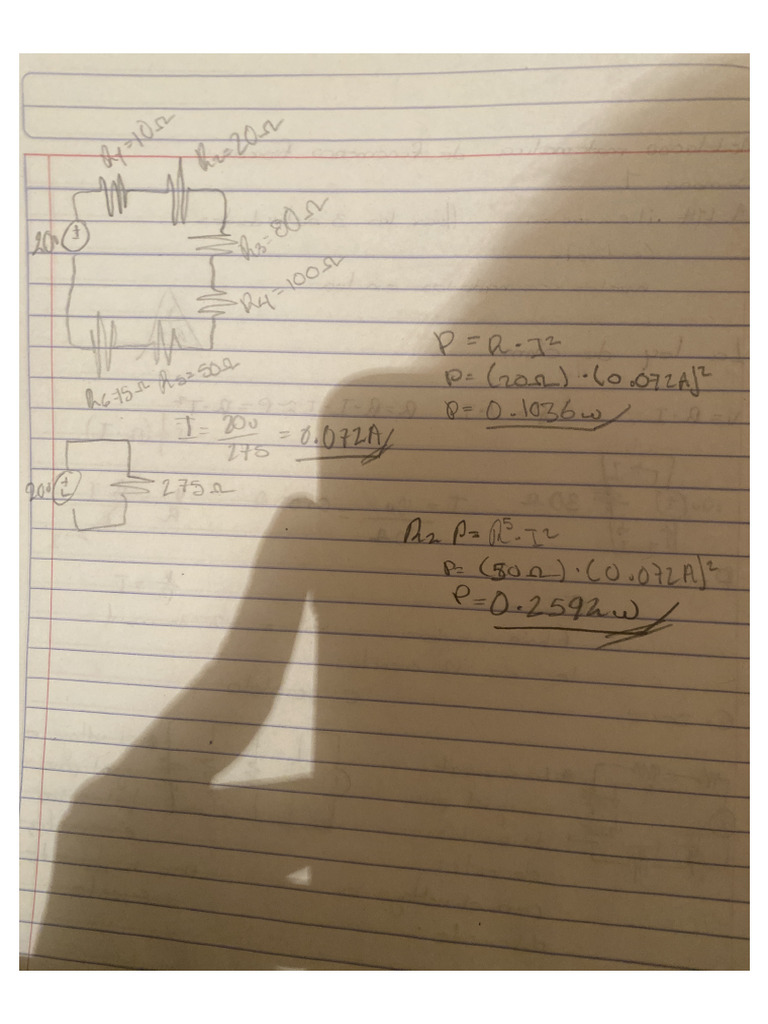 R1=10Ω
R2=20Ω
20v
R3=80Ω
R4=100Ω
R6=75Ω R5=50Ω
I = 20v/275 = 0.072A
20v
275Ω
P = R·I²
P= (20Ω)·(0.072A)²
P= 0.1036w
P= R5·I²
P= (50Ω)·(0.072A)²
P= 0.2592w